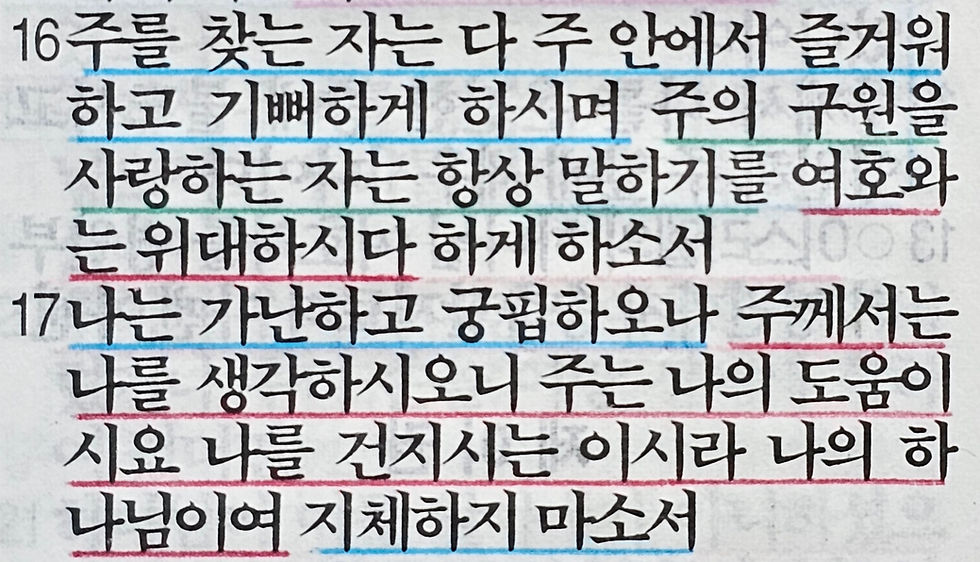 16 주를 찾는 자는 다 주 안에서 즐거워
하고 기뻐하게 하시며 주의 구원을
사랑하는 자는 항상 말하기를 여호와
는 위대하시다 하게 하소서
17 나는 가난하고 궁핍하오나 주께서는
나를 생각하시오니 주는 나의 도움이
시요 나를 건지시는 이시라 나의 하
나님이여 지체하지 마소서